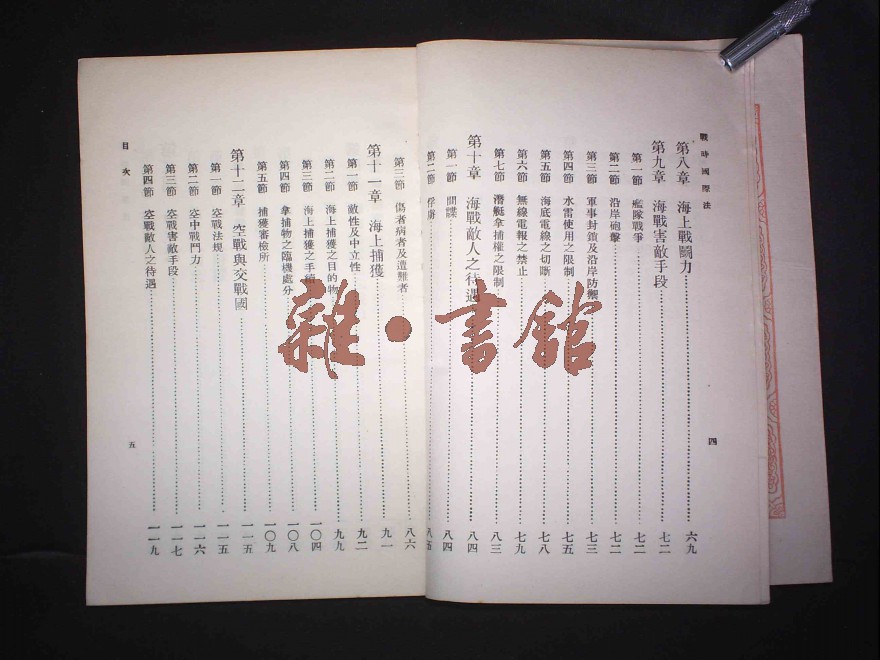 戰時國際法
第八章 海上戰鬭力……六九
第九章 海戰害敵手段……七二
第一節 艦隊戰爭……七二
第二節 沿岸砲擊……七二
第三節 軍事封鎖及沿岸防禦……七三
第四節 水雷使用之限制……七五
第五節 海底電線之切斷……七八
第六節 無線電報之禁止……七九
第七節 潛艇拿捕權之限制……八三
第十章 海戰敵人之待遇……八四
第一節 間諜……八四
第二節 俘虜……八五
四
第三節 傷者病者及遭難者……八六
第十一章 海上捕獲……九一
第一節 敵性及中立性……九二
第二節 海上捕獲之目的物……九九
第三節 海上捕獲之手續……一〇四
第四節 拿捕物之臨機處分……一〇八
第五節 捕獲審檢所……一〇九
第十二章 空戰與交戰國……一一五
第一節 空戰法規……一一五
第二節 空中戰鬥力……一一六
第三節 空戰害敵手段……一一七
第四節 空戰敵人之待遇……一一九
目次
五
雜·書館